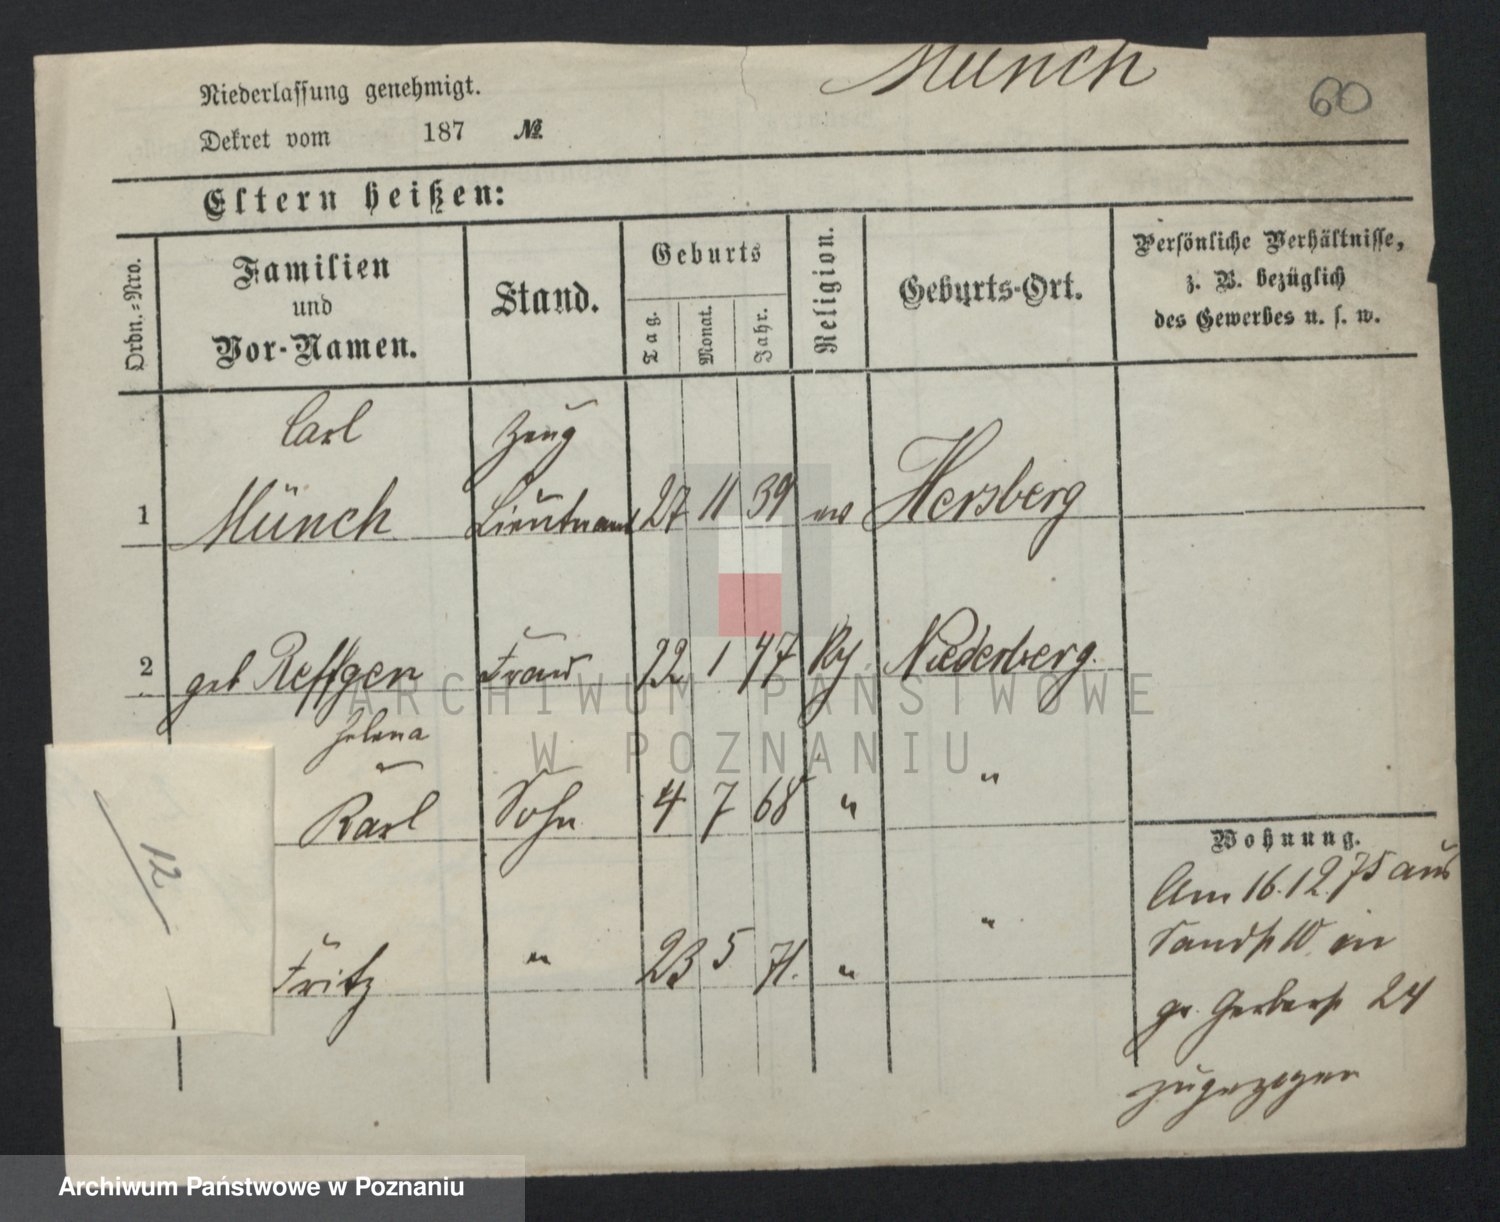 Münch
60
Niederlassung genehmigt.
Dekret vom 187 №
Eltern heißen:
Ordn.-Nro.
Familien
und
Vor-Namen.
Stand.
Geburts
Tag.
Monat.
Jahr.
Religion.
Geburts-Ort.
Persönliche Verhältnisse,
z. B. bezüglich
des Gewerbes u. s. w.
Carl Zeug
1 Münch Lieutnant 27 11 39 ev Hersberg
2 geb Reffgen Frau 22 1 47 Niederberg.
Helena
Karl Sohn 4 7 68 " "
Fritz " 23 5 71. " "
Wohnung.
Am 16.12.75 aus
Sandstr 10 in
gr. Gerberstr 24
zugezogen
12
ARCHIWUM PAŃSTWOWE
W POZNANIU
Archiwum Państwowe w Poznaniu